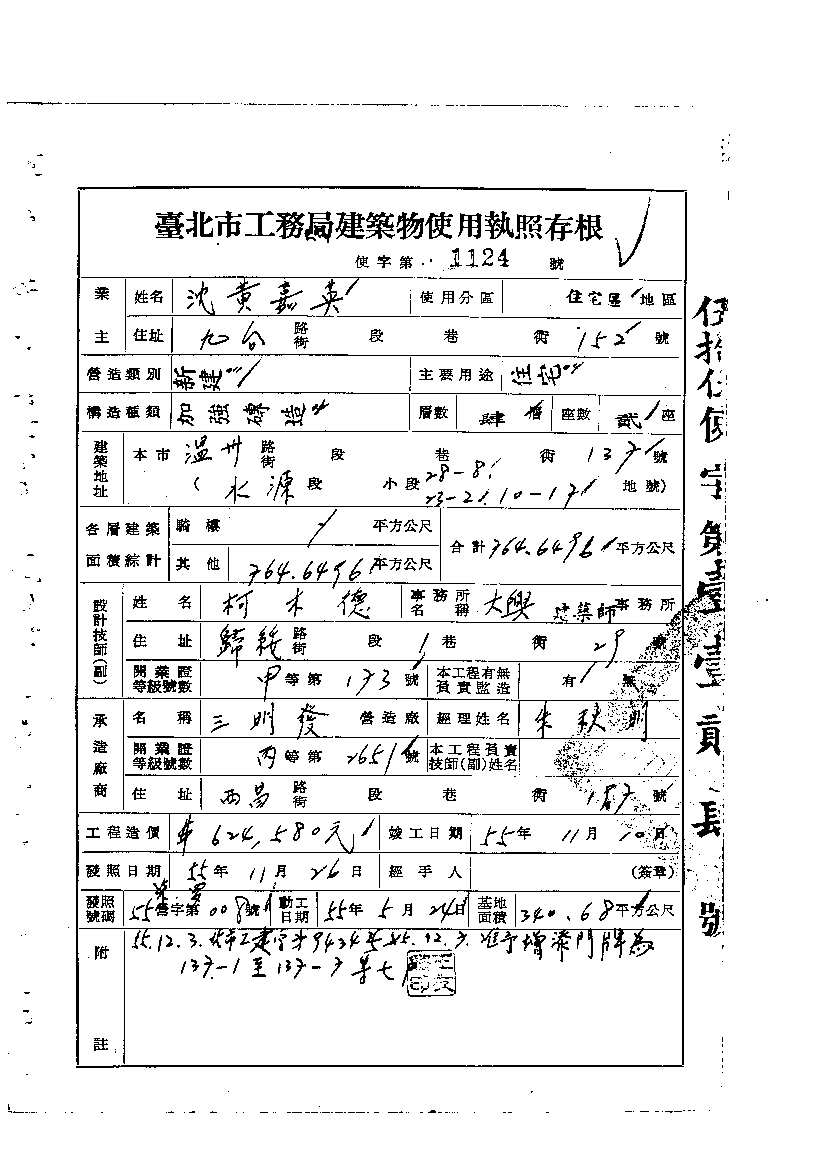 臺北市工務局建築物使用執照存根
使字第 1124 號
業主 姓名 沈黃嘉英 使用分區 住宅區 地區
住址 九合 路街 段 巷 衖 152 號
營造類別 新建 主要用途 住宅
構造種類 加強磚造 層數 肆層 座數 貳座
建築地址 本市 溫州 路街 段 巷 衖 137 號
( 水源 段 小段 28-8 23-21.10-17 地號)
各層建築面積綜計 騎樓 平方公尺 合計 764.6496 平方公尺
其他 764.6496 平方公尺
設計技師(副) 姓名 柯木德 事務所名稱 大興 建築師事務所
住址 歸綏 路街 段 巷 衖 29 號
開業證等級號數 甲等第 173 號 本工程有無負責監造 有 無
承造廠商 名稱 三明發 營造廠 經理姓名 朱秋明
開業證等級號數 丙等第 2651 號 本工程負責技師(副)姓名
住址 西昌 路街 段 巷 衖 187 號
工程造價 624,580元 竣工日期 55年 11月 10日
發照日期 55年 11月 26日 經手人 (簽章)
發照號碼 55 營字第 008 號 動工日期 55年 5月 24日 基地面積 340.68 平方公尺
附註 55.12.3.北市工建字第9434號 55.12.7.准予增添門牌為
137-1 至 137-7 等七戶
伍拾伍使字第壹壹貳長號